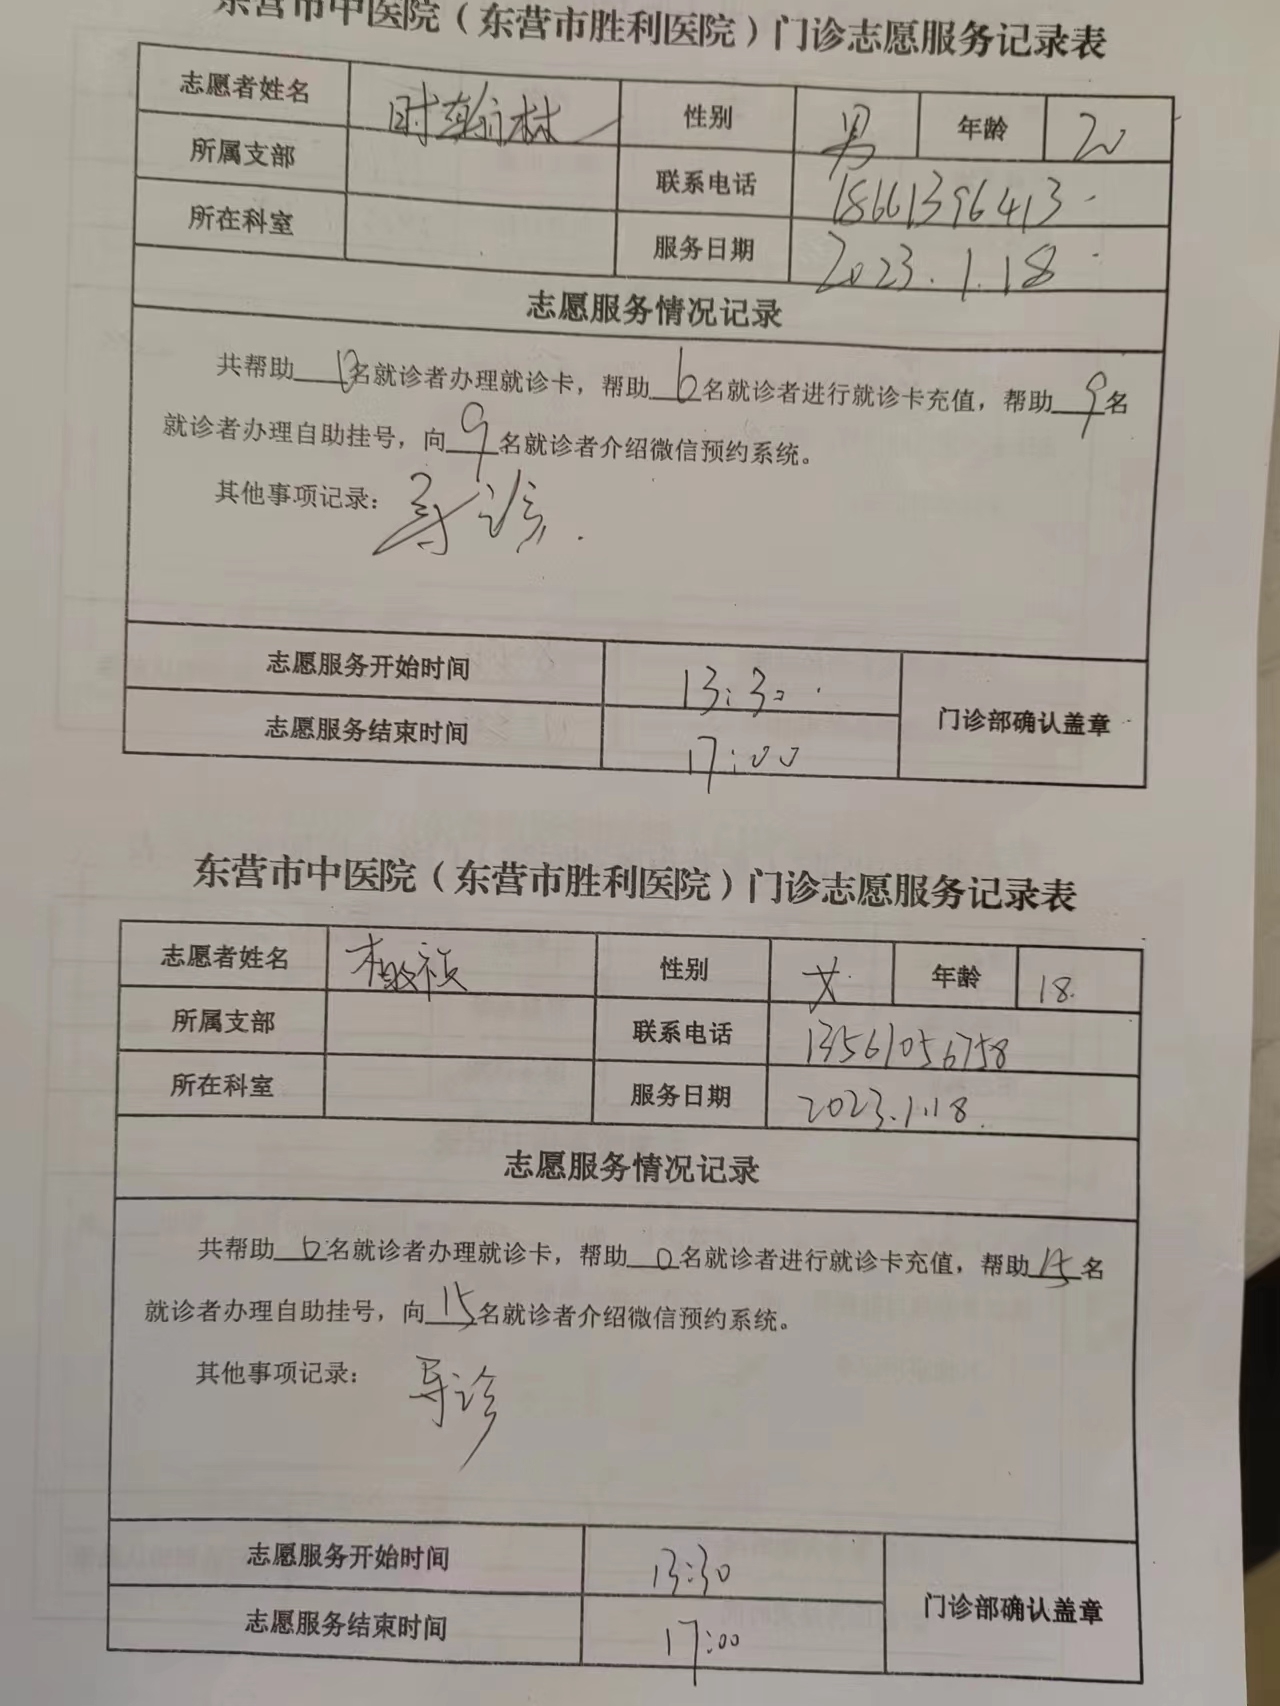 东营市中医院（东营市胜利医院）门诊志愿服务记录表
志愿者姓名 时翰林 性别 男 年龄 20
所属支部 联系电话 18661396413
所在科室 服务日期 2023.1.18
志愿服务情况记录
共帮助 名就诊者办理就诊卡，帮助6名就诊者进行就诊卡充值，帮助9名
就诊者办理自助挂号，向9名就诊者介绍微信预约系统。
其他事项记录：导诊.
志愿服务开始时间 13:30
门诊部确认盖章
志愿服务结束时间 17:00
东营市中医院（东营市胜利医院）门诊志愿服务记录表
志愿者姓名 性别 女 年龄 18.
所属支部 联系电话 13561056758
所在科室 服务日期 2023.1.18.
志愿服务情况记录
共帮助 名就诊者办理就诊卡，帮助0名就诊者进行就诊卡充值，帮助15名
就诊者办理自助挂号，向15名就诊者介绍微信预约系统。
其他事项记录：导诊
志愿服务开始时间 13:30
门诊部确认盖章
志愿服务结束时间 17:00